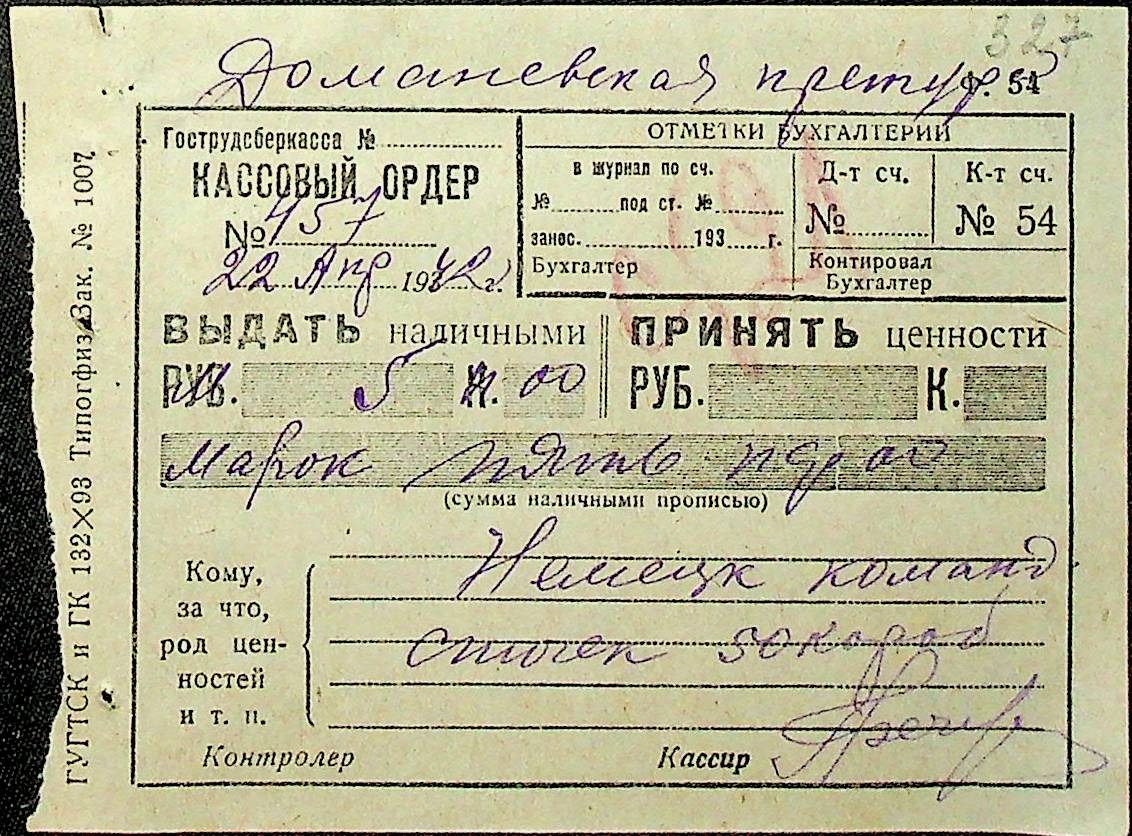 327
Доманевская претур
Ф. 54
Гострудсберкасса №
КАССОВЫЙ ОРДЕР
№ 457
22 Апр 1942 г.
ОТМЕТКИ БУХГАЛТЕРИИ
в журнал по сч.
№ под ст. №
занос. 193 г.
Бухгалтер
Д-т сч.
№
К-т сч.
№ 54
Контировал
Бухгалтер
ВЫДАТЬ наличными
РУБ. 5 К. 00
ПРИНЯТЬ ценности
РУБ. К.
Марок пять 00
(сумма наличными прописью)
Кому,
за что,
род цен-
ностей
и т. п.
Немецк команд
спичек 30 короб
Контролер
Кассир
ГУГТСК и ГК 132×93 Типогфиз Зак. № 1007